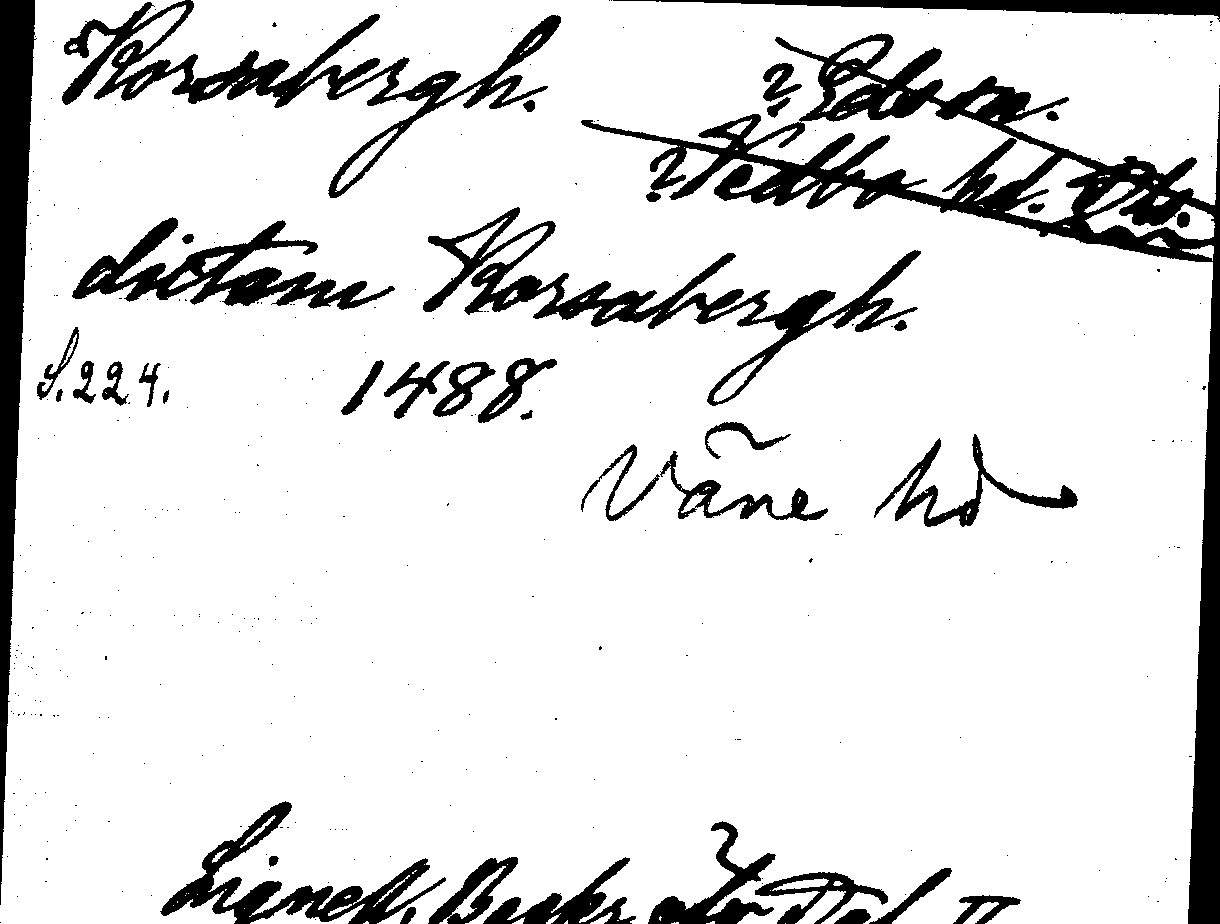 Korssabergh. ? Edsm.
? Vedbo hd. Dls.
dictam Korssabergh.
S. 224. 1488.
Väne hd
Lignell, Beskr. öfv. Dal II